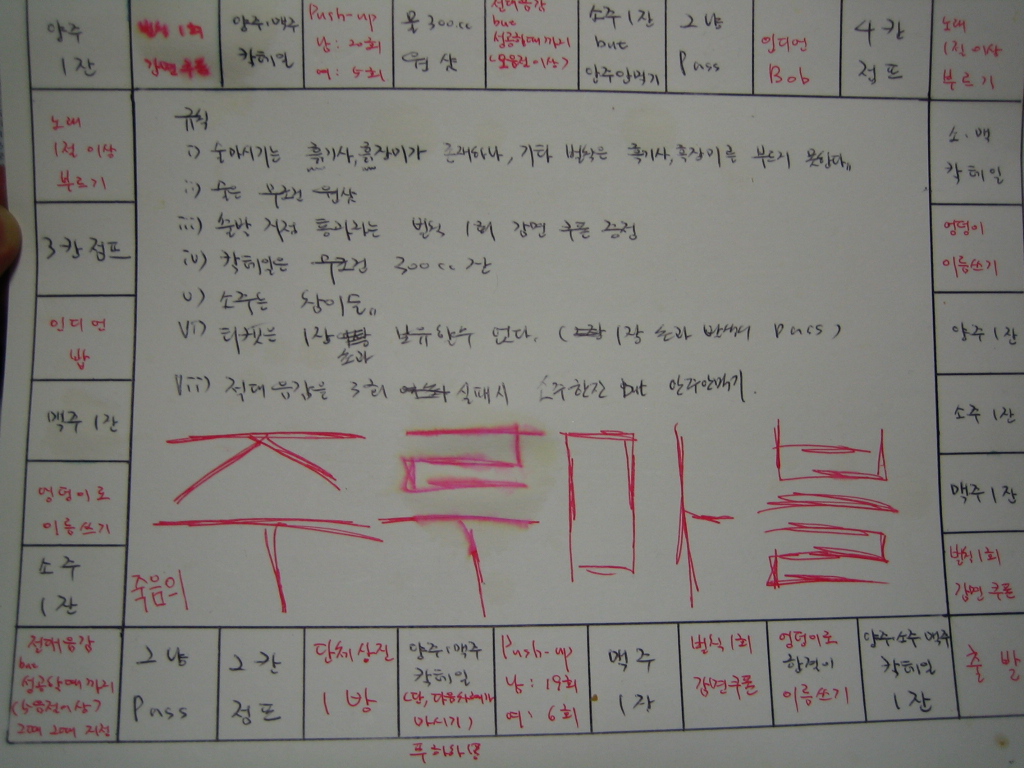 양주
1잔
벌칙 1회
감면 쿠폰
양주+맥주
칵테일
Push-up
남: 20회
여: 5회
물 300cc
원샷
절대음감
but
성공할때까지
(5음절이상)
소주 1잔
but
안주안먹기
그냥
Pass
인디언
Bob
4칸
점프
노래
1절 이상
부르기
노래
1절 이상
부르기
3칸 점프
인디언
밥
맥주 1잔
엉덩이로
이름쓰기
소주
1잔
규칙
i) 술마시기는 흑기사, 흑장미가 존재하나, 기타 벌칙은 흑기사, 흑장미를 부르지 못한다.
ii) 술은 무조건 원샷
iii) 출발 지점 통과자는 벌칙 1회 감면 쿠폰 증정
iv) 칵테일은 무조건 300cc 잔
v) 소주는 참이슬
vi) 티켓은 1장 초과 보유할수 없다. (1장 초과 반칙시 Pass)
vii) 절대음감을 3회 실패시 소주한잔 But 안주안먹기.
죽음의
주루마블
소·맥
칵테일
엉덩이
이름쓰기
양주 1잔
소주 1잔
맥주 1잔
벌칙 1회
감면 쿠폰
절대음감
but
성공할때까지
(5음절이상)
그냥
Pass
2칸
점프
단체 삼진
1방
양주+맥주
칵테일
(단, 다음차례가
마시기)
Push-up
남: 19회
여: 6회
맥주
1잔
벌칙 1회
감면쿠폰
엉덩이로
이름쓰기
양주·소주·맥주
칵테일
1잔
출발
푸하하